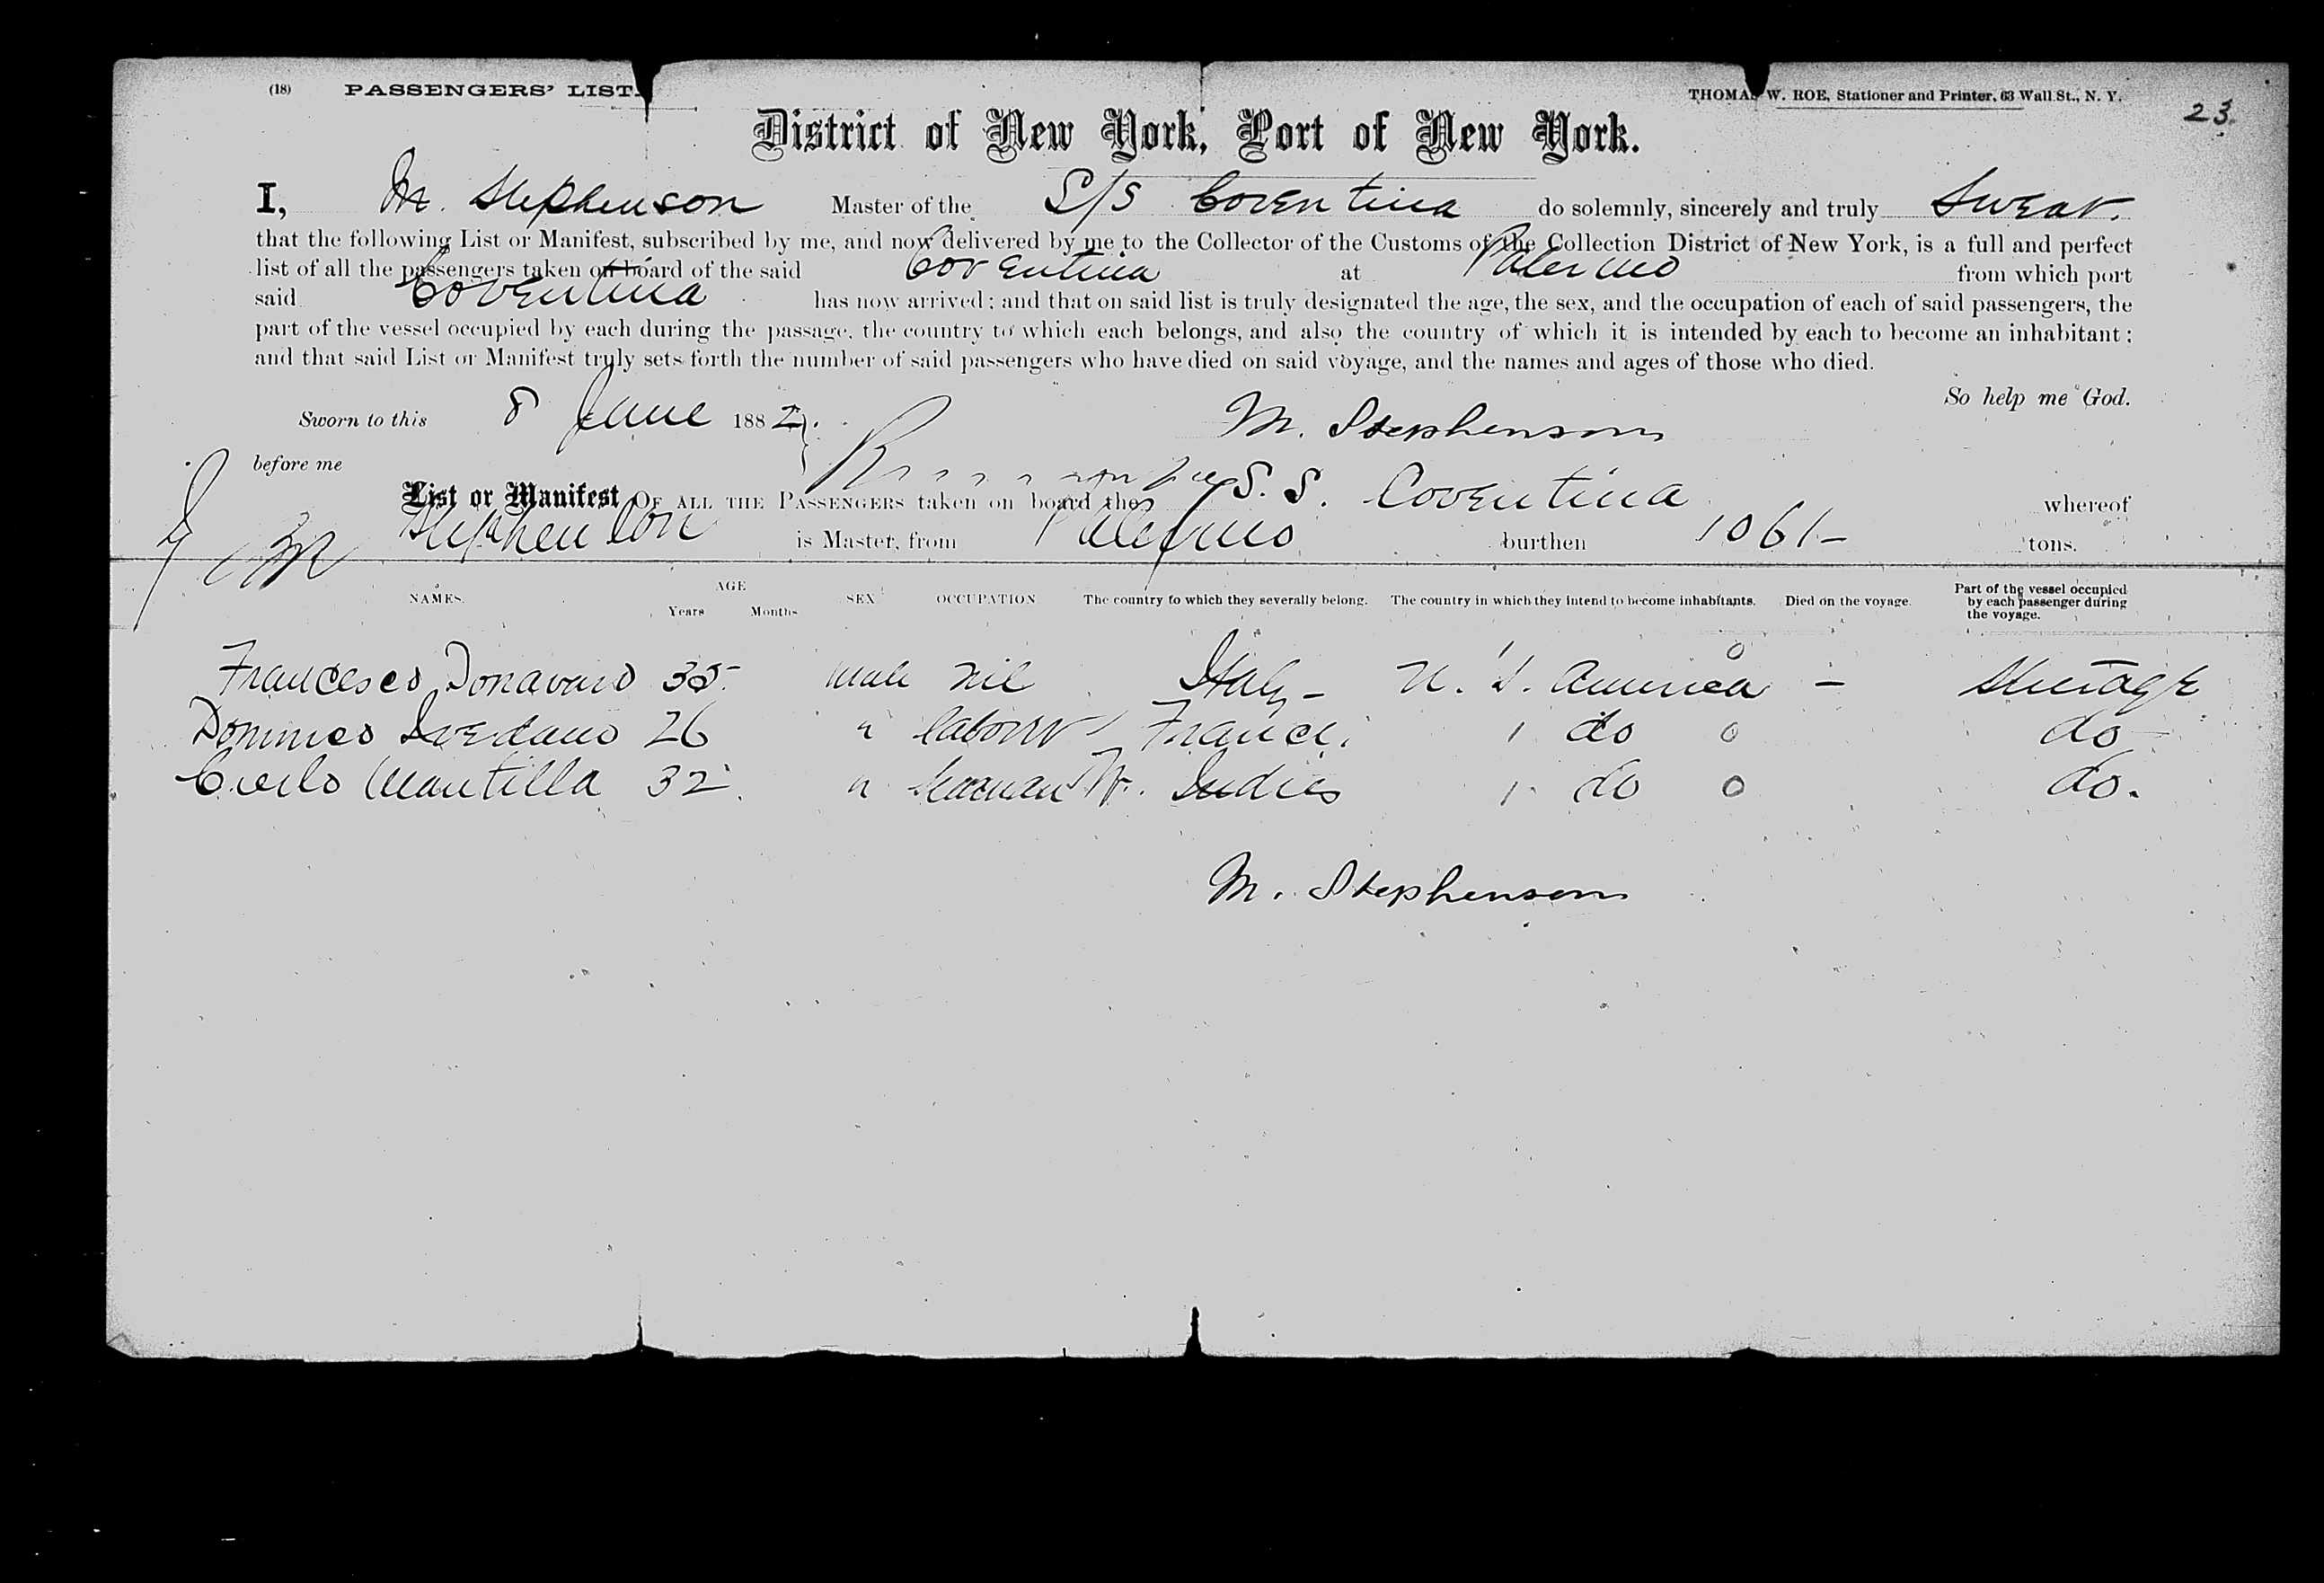 (18) PASSENGERS' LIST. THOMAS W. ROE, Stationer and Printer, 63 Wall St., N. Y.
23
District of New York, Port of New York.
I, M. Stephenson Master of the S/S Coventina do solemnly, sincerely and truly Swear.
that the following List or Manifest, subscribed by me, and now delivered by me to the Collector of the Customs of the Collection District of New York, is a full and perfect
list of all the passengers taken on board of the said Coventina at Palermo from which port
said Coventina has now arrived; and that on said list is truly designated the age, the sex, and the occupation of each of said passengers, the
part of the vessel occupied by each during the passage, the country to which each belongs, and also the country of which it is intended by each to become an inhabitant;
and that said List or Manifest truly sets forth the number of said passengers who have died on said voyage, and the names and ages of those who died.
So help me God.
Sworn to this 8 June 1882. M. Stephenson
before me
List or Manifest OF ALL THE PASSENGERS taken on board the S. S. Coventina whereof
M Stephenson is Master, from Palermo burthen 1061- tons.
NAMES. AGE Years Months SEX OCCUPATION The country to which they severally belong. The country in which they intend to become inhabitants. Died on the voyage. Part of the vessel occupied by each passenger during the voyage.
Francesco 35. male nil Italy - U. S. America - Steerage
26 " labourer France. " do 0 do
Carlo Mantilla 32 " seaman W. Indies " do 0 do.
M. Stephenson